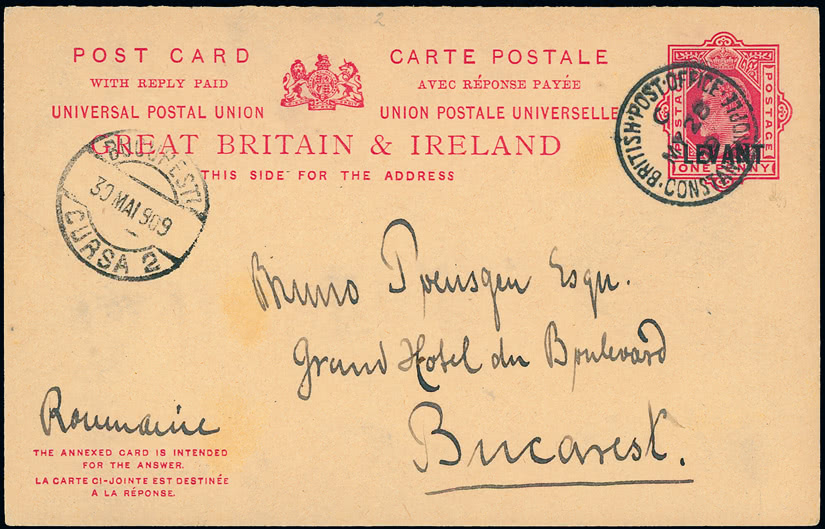 2
POST CARD
WITH REPLY PAID
UNIVERSAL POSTAL UNION
CARTE POSTALE
AVEC RÉPONSE PAYÉE
UNION POSTALE UNIVERSELLE
GREAT BRITAIN & IRELAND
THIS SIDE FOR THE ADDRESS
POSTAGE
ONE PENNY
LEVANT
BRITISH·POST·OFFICE
C
MA 28
BUCURESTI
30 MAI 909
CURSA 2
Bruno Poensgen Esqu.
Grand Hotel du Boulevard
Bucarest.
Roumanie
THE ANNEXED CARD IS INTENDED
FOR THE ANSWER.
LA CARTE CI-JOINTE EST DESTINÉE
A LA RÉPONSE.